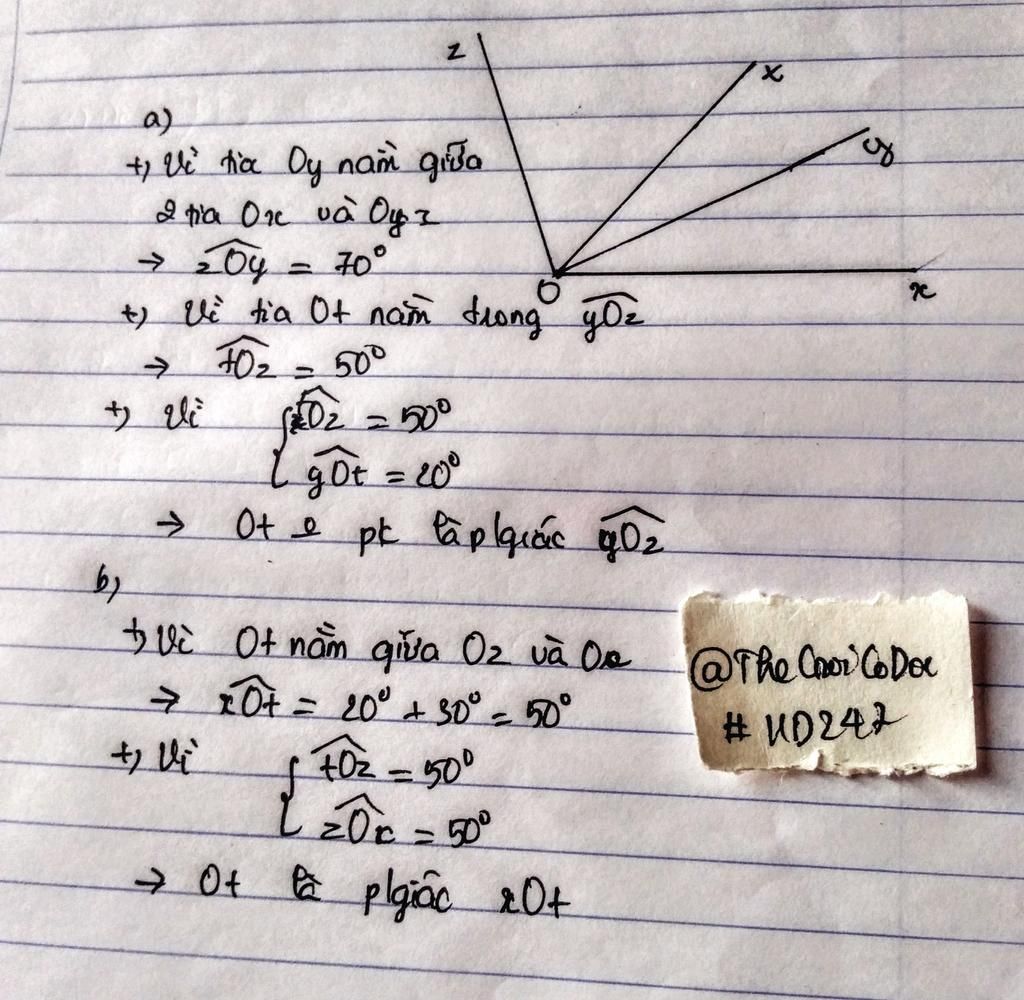 z
x
y
O
x
a)
+) Vì tia Oy nằm giữa
2 tia Ox và Oyz
→ zOy = 70°
+) Vì tia Ot nằm trong yOz
→ tOz = 50°
+) Vì { tOz = 50°
yOt = 20°
→ Ot pt là p/giác yOz
b)
+) Vì Ot nằm giữa Oz và Ox
→ xOt = 20° + 30° = 50°
+) Vì { tOz = 50°
zOx = 50°
→ Ot là p/giác xOt
# UD247